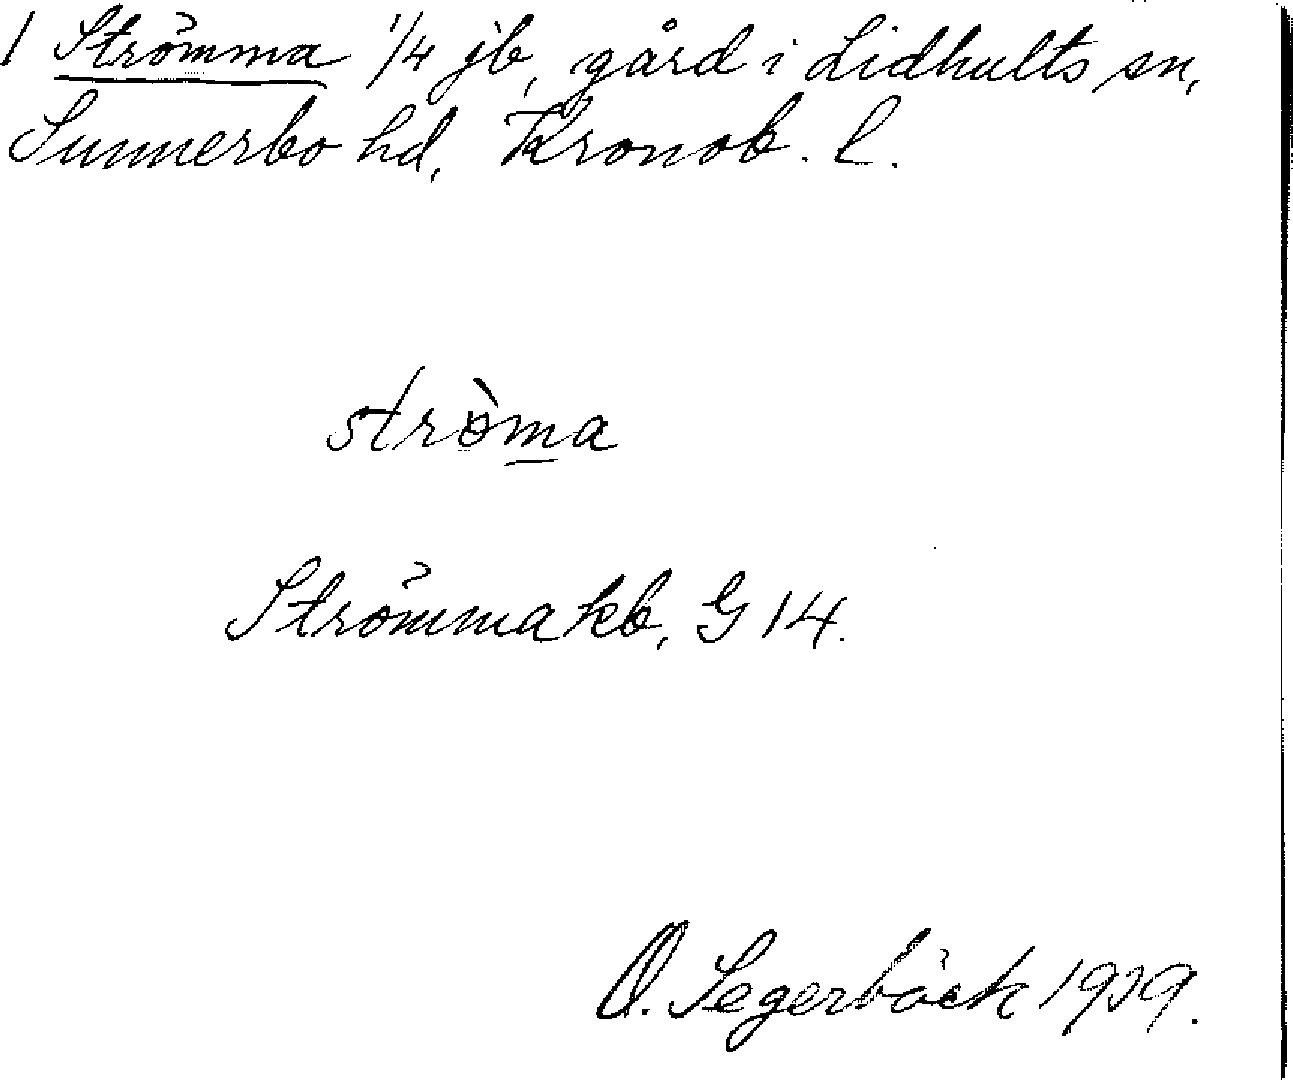 1 Strömma 1/4 jb, gård i Lidhults sn,
Sunnerbo hd, Kronob. l.
strò̤ma
Strömma kb, G 14.
O. Segerbäck 1939.